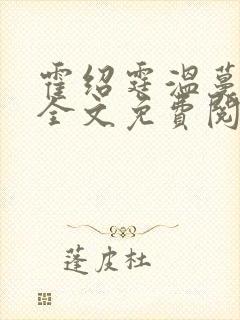 霍绍霆温蔓
全文免费阅
蓬皮杜